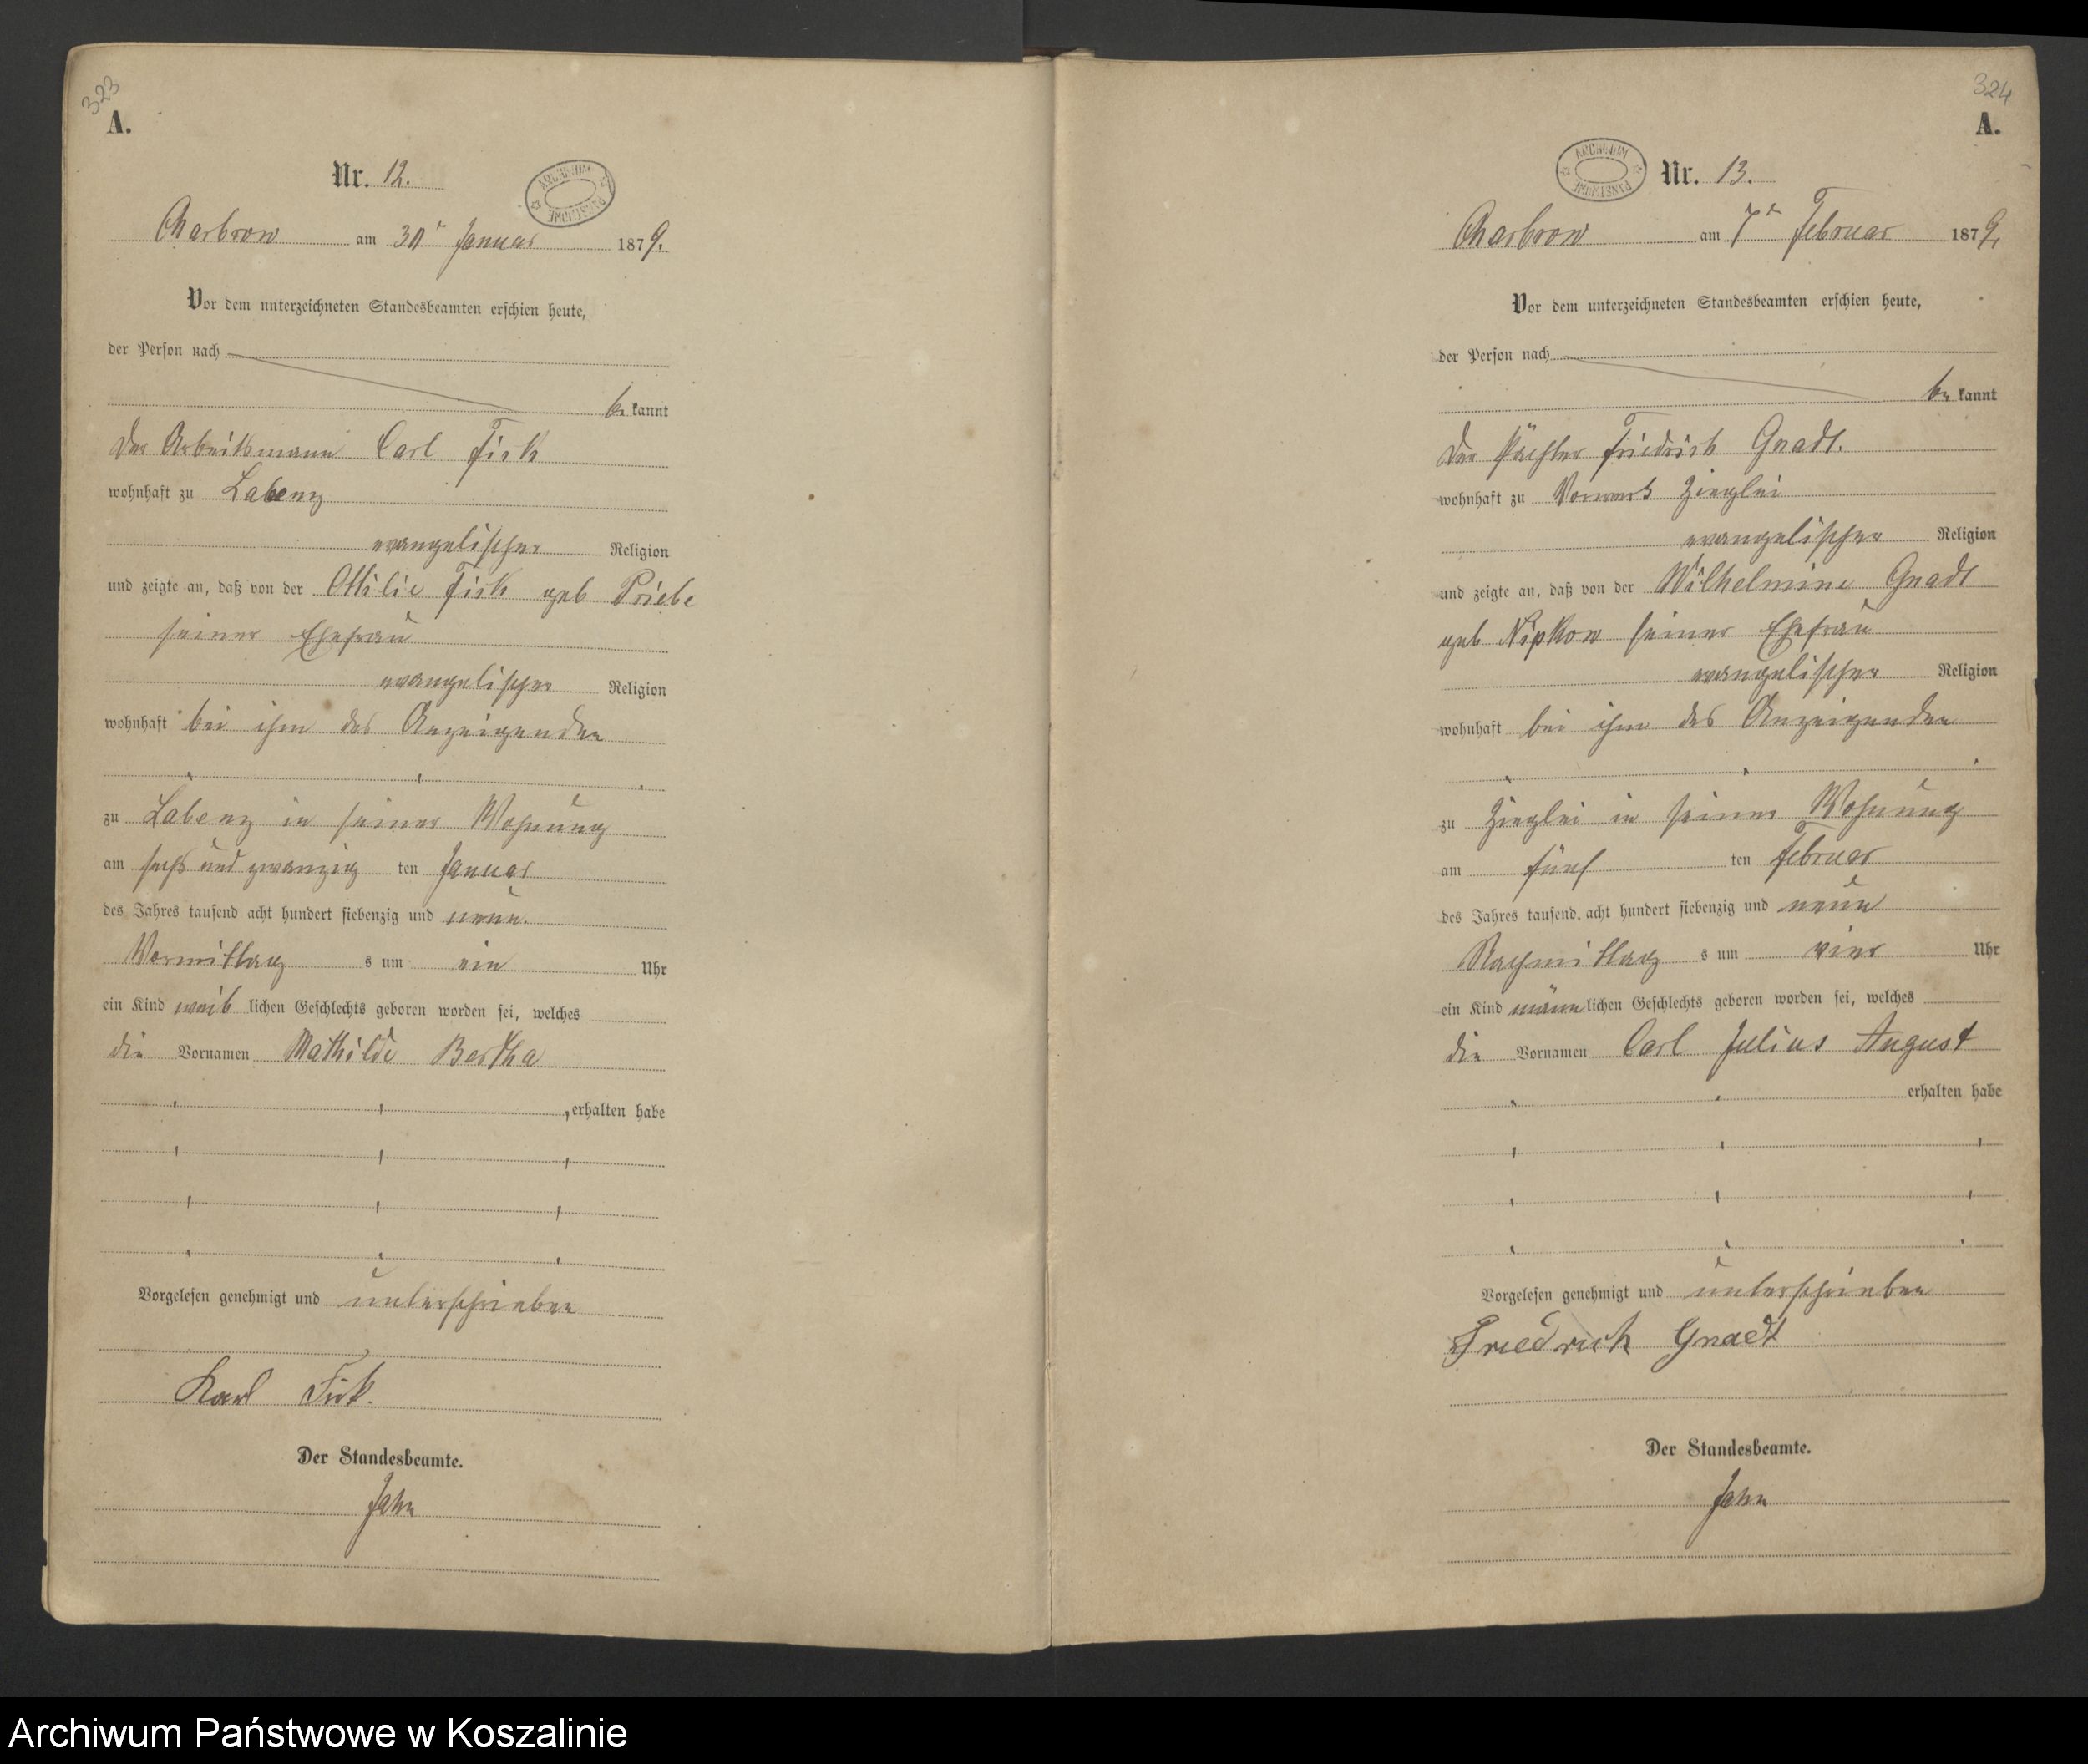 323
A.
Nr. 12.
ARCHIWUM PAŃSTWOWE
Charbrow am Januar 1879.
Vor dem unterzeichneten Standesbeamten erschien heute,
der Person nach
be kannt
Der Arbeitsmann Carl Fick
wohnhaft zu Labenz
evangelischer Religion
und zeigte an, daß von der Ottilie Fick geb Priebe
seiner Ehefrau
evangelischer Religion
wohnhaft bei ihm des Anzeigenden
zu Labenz in seiner Wohnung
am sechs und zwanzig ten Januar
des Jahres tausend acht hundert siebenzig und neun.
Vormittag s um ein Uhr
ein Kind weib lichen Geschlechts geboren worden sei, welches
die Vornamen Mathilde Bertha
erhalten habe
Vorgelesen genehmigt und unterschrieben
Karl Fick.
Der Standesbeamte.
Jahn
324
A.
ARCHIWUM PAŃSTWOWE
Nr. 13.
Charbrow am 7t Februar 1879,
Vor dem unterzeichneten Standesbeamten erschien heute,
der Person nach
be kannt
Der Pächter Friedrich Gnadt.
wohnhaft zu Vorwerk Zieglei
evangelischer Religion
und zeigte an, daß von der Wilhelmine Gnadt
geb Nipkow seiner Ehefrau
evangelischer Religion
wohnhaft bei ihm des Anzeigenden
zu Zieglei in seiner Wohnung
am fünf ten Februar
des Jahres tausend acht hundert siebenzig und neun
Nachmittag s um vier Uhr
ein Kind männ lichen Geschlechts geboren worden sei, welches
die Vornamen Carl Julius August
erhalten habe
Vorgelesen genehmigt und unterschrieben
Friedrich Gnadt
Der Standesbeamte.
Jahn
Archiwum Państwowe w Koszalinie